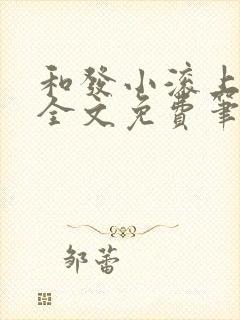 和發小滾上
全文免費筆
邹蕾